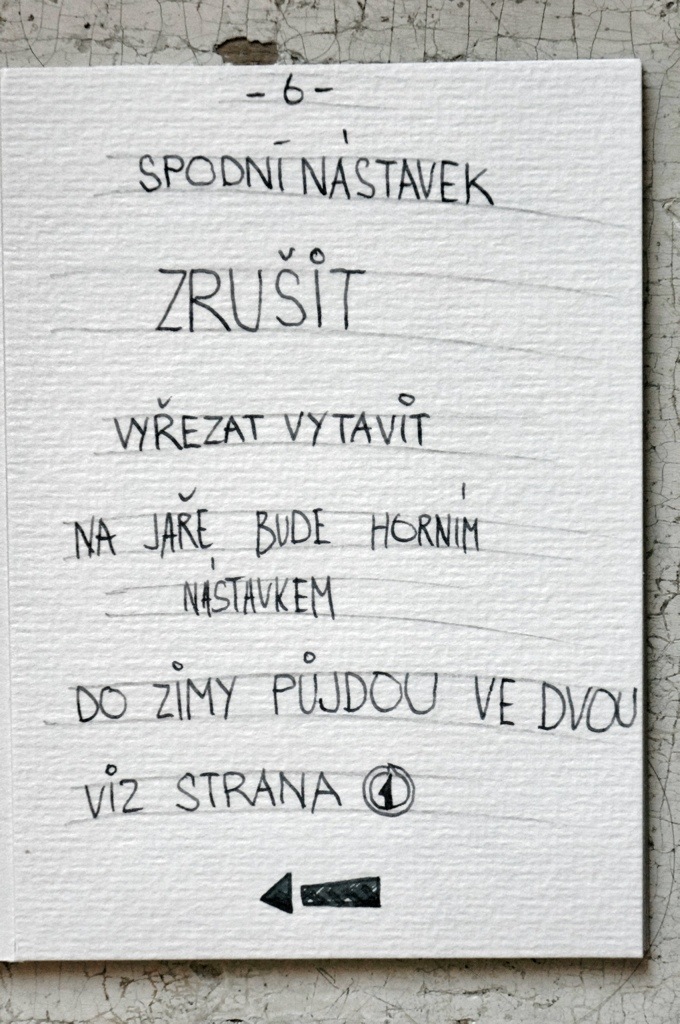 - 6 -
SPODNÍ NÁSTAVEK
ZRUŠIT
VYŘEZAT VYTAVIT
NA JAŘE BUDE HORNÍM
NÁSTAVKEM
DO ZIMY PŮJDOU VE DVOU
VIZ STRANA 1